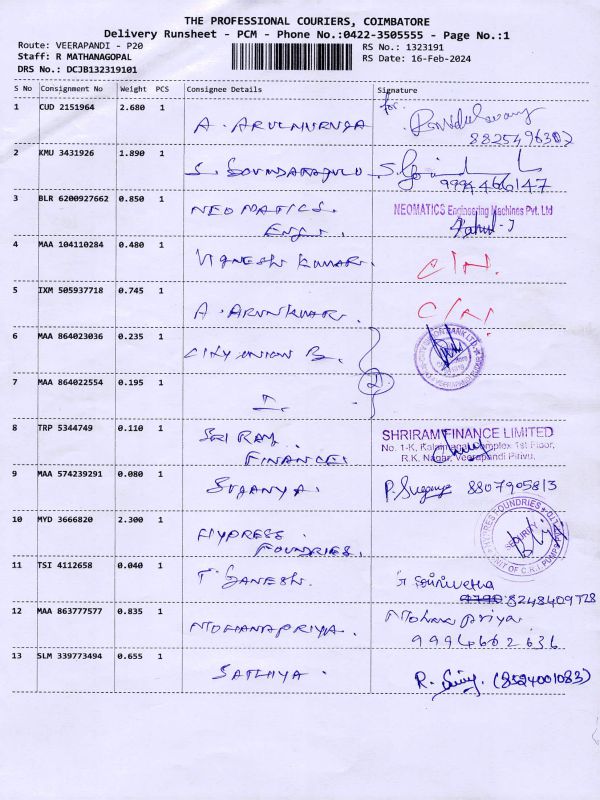 THE PROFESSIONAL COURIERS, COIMBATORE
Delivery Runsheet - PCM - Phone No.:0422-3505555 - Page No.:1
Route: VEERAPANDI - P20
RS No.: 1323191
Staff: R MATHANAGOPAL
RS Date: 16-Feb-2024
DRS No.: DCJB132319101
S No Consignment No Weight PCS Consignee Details Signature
1 CUD 2151964 2.680 1
for.
8825496302
2 KMU 3431926 1.890 1 S. SOUNDARARAJULU
9994466147
3 BLR 6200927662 0.850 1 NEOMATICS. NEOMATICS Engineering Machines Pvt. Ltd
ENGI.
4 MAA 104110284 0.480 1 VIGNESH KUMAR.
5 IXM 505937718 0.745 1 A. ARUNKUMAR.
6 MAA 864023036 0.235 1 CITY UNION B.
7 MAA 864022554 0.195 1
2
8 TRP 5344749 0.110 1 SRI RAM. SHRIRAM FINANCE LIMITED
FINANCE. No. 1-K, Complex 1st Floor,
R.K. Nagar, Veerapandi Pirivu,
9 MAA 574239291 0.080 1 SUGANYA. P. Suganya 8807905813
10 MYD 3666820 2.300 1 FOUNDRIES.
SECURITY
11 TSI 4112658 0.040 1 T. GANESH.
8248409728
12 MAA 863777577 0.835 1 MOHANAPRIYA. Mohanapriya
9994662636
13 SLM 339773494 0.655 1 SATHYA. R. (8524001083)